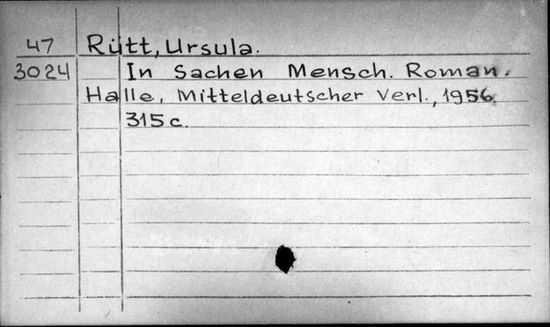 47 Rütt, Ursula.
3024 In Sachen Mensch. Roman.
Halle, Mitteldeutscher Verl., 1956.
315 c.